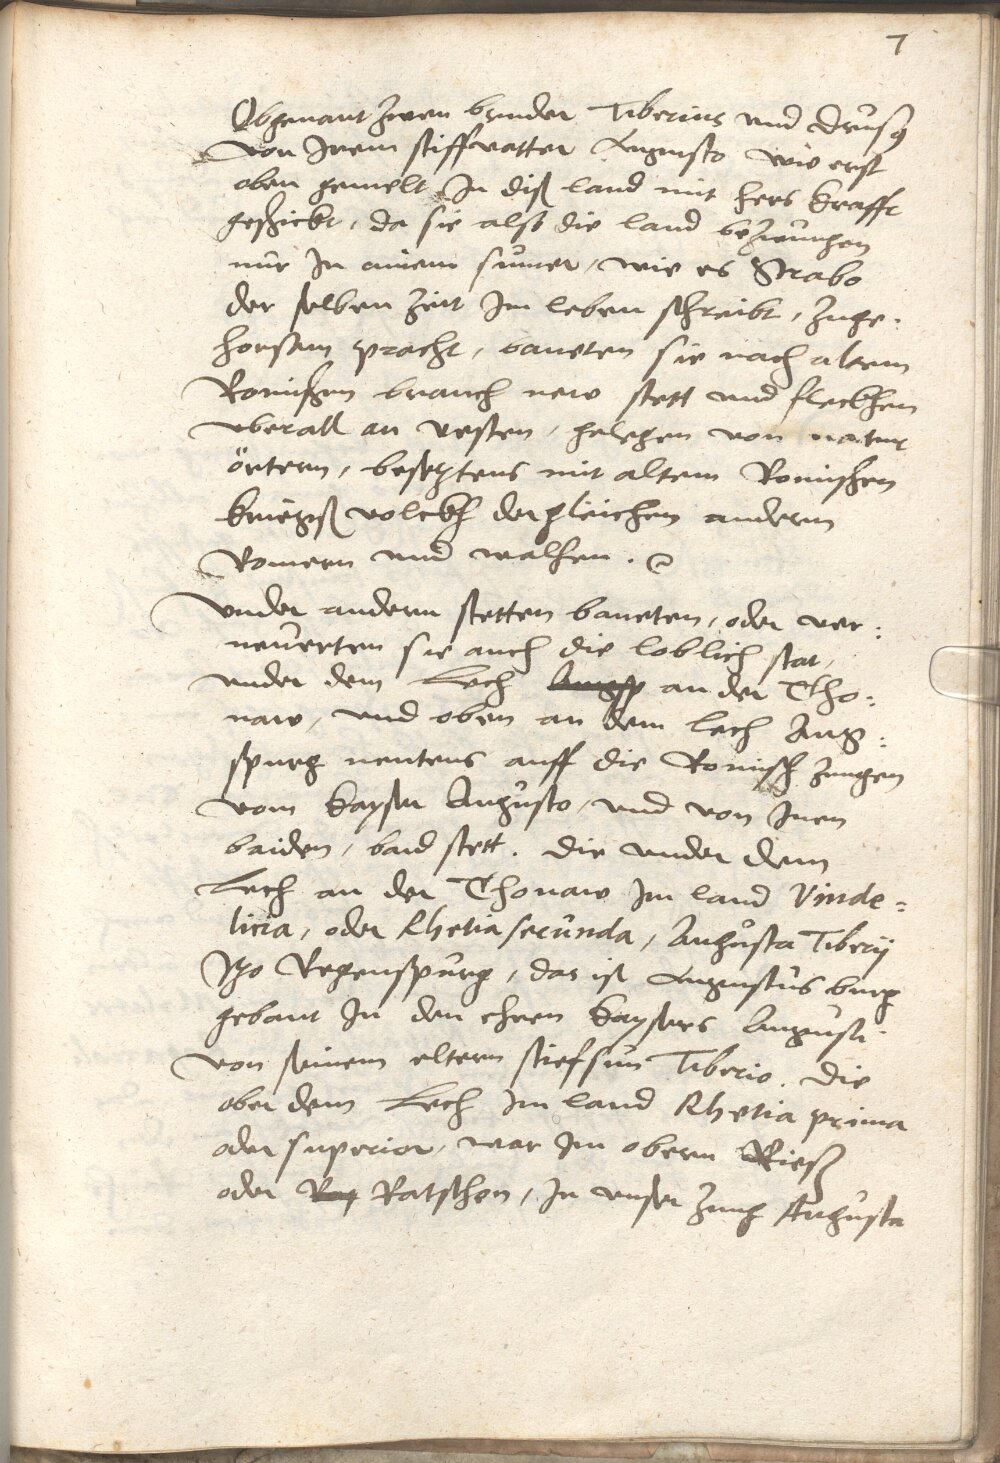 7
Obgenant zwen bruder Tiberius und Drusus
von Irem stiffvatter Augusto wie erst
oben gemelt In diß land mit hers krafft
geschickt, da sie also die land bezwungen
nur In ainem sumer, wie es Strabo
der selben Zeit Im leben schreibt, zuge-
horsam pracht, baueten sie nach altem
Romischen brauch new stett und fleckhen
uberall an vesten, gelegen von natur
örtern, besetztens mit altem Romischen
kriegß volckh dergleichen anderm
Romern und walhen.
Under andern stetten baueten, oder ver:
neuerten sie auch die loblich stat,
under dem Lech an der Tho:
naw, und oben an dem lech Aug:
spurg nentens auff die Romisch zungen
vom kayser Augusto, und von Inen
baiden, baid stett. Die under dem
Lech an der Thonaw Im land Vinde-
licia, oder Rhetia secunda, Augusta Tiberij
Itzo Regenspurg, das ist Augustus burg
gebaut In den ehren kaysers Augusti
von seinem eltern stiefsun Tiberio. Die
ober dem Lech Im land Rhetia prima
oder superior, war Im obern Rieß
oder Ratschon, In unser zung Augusta